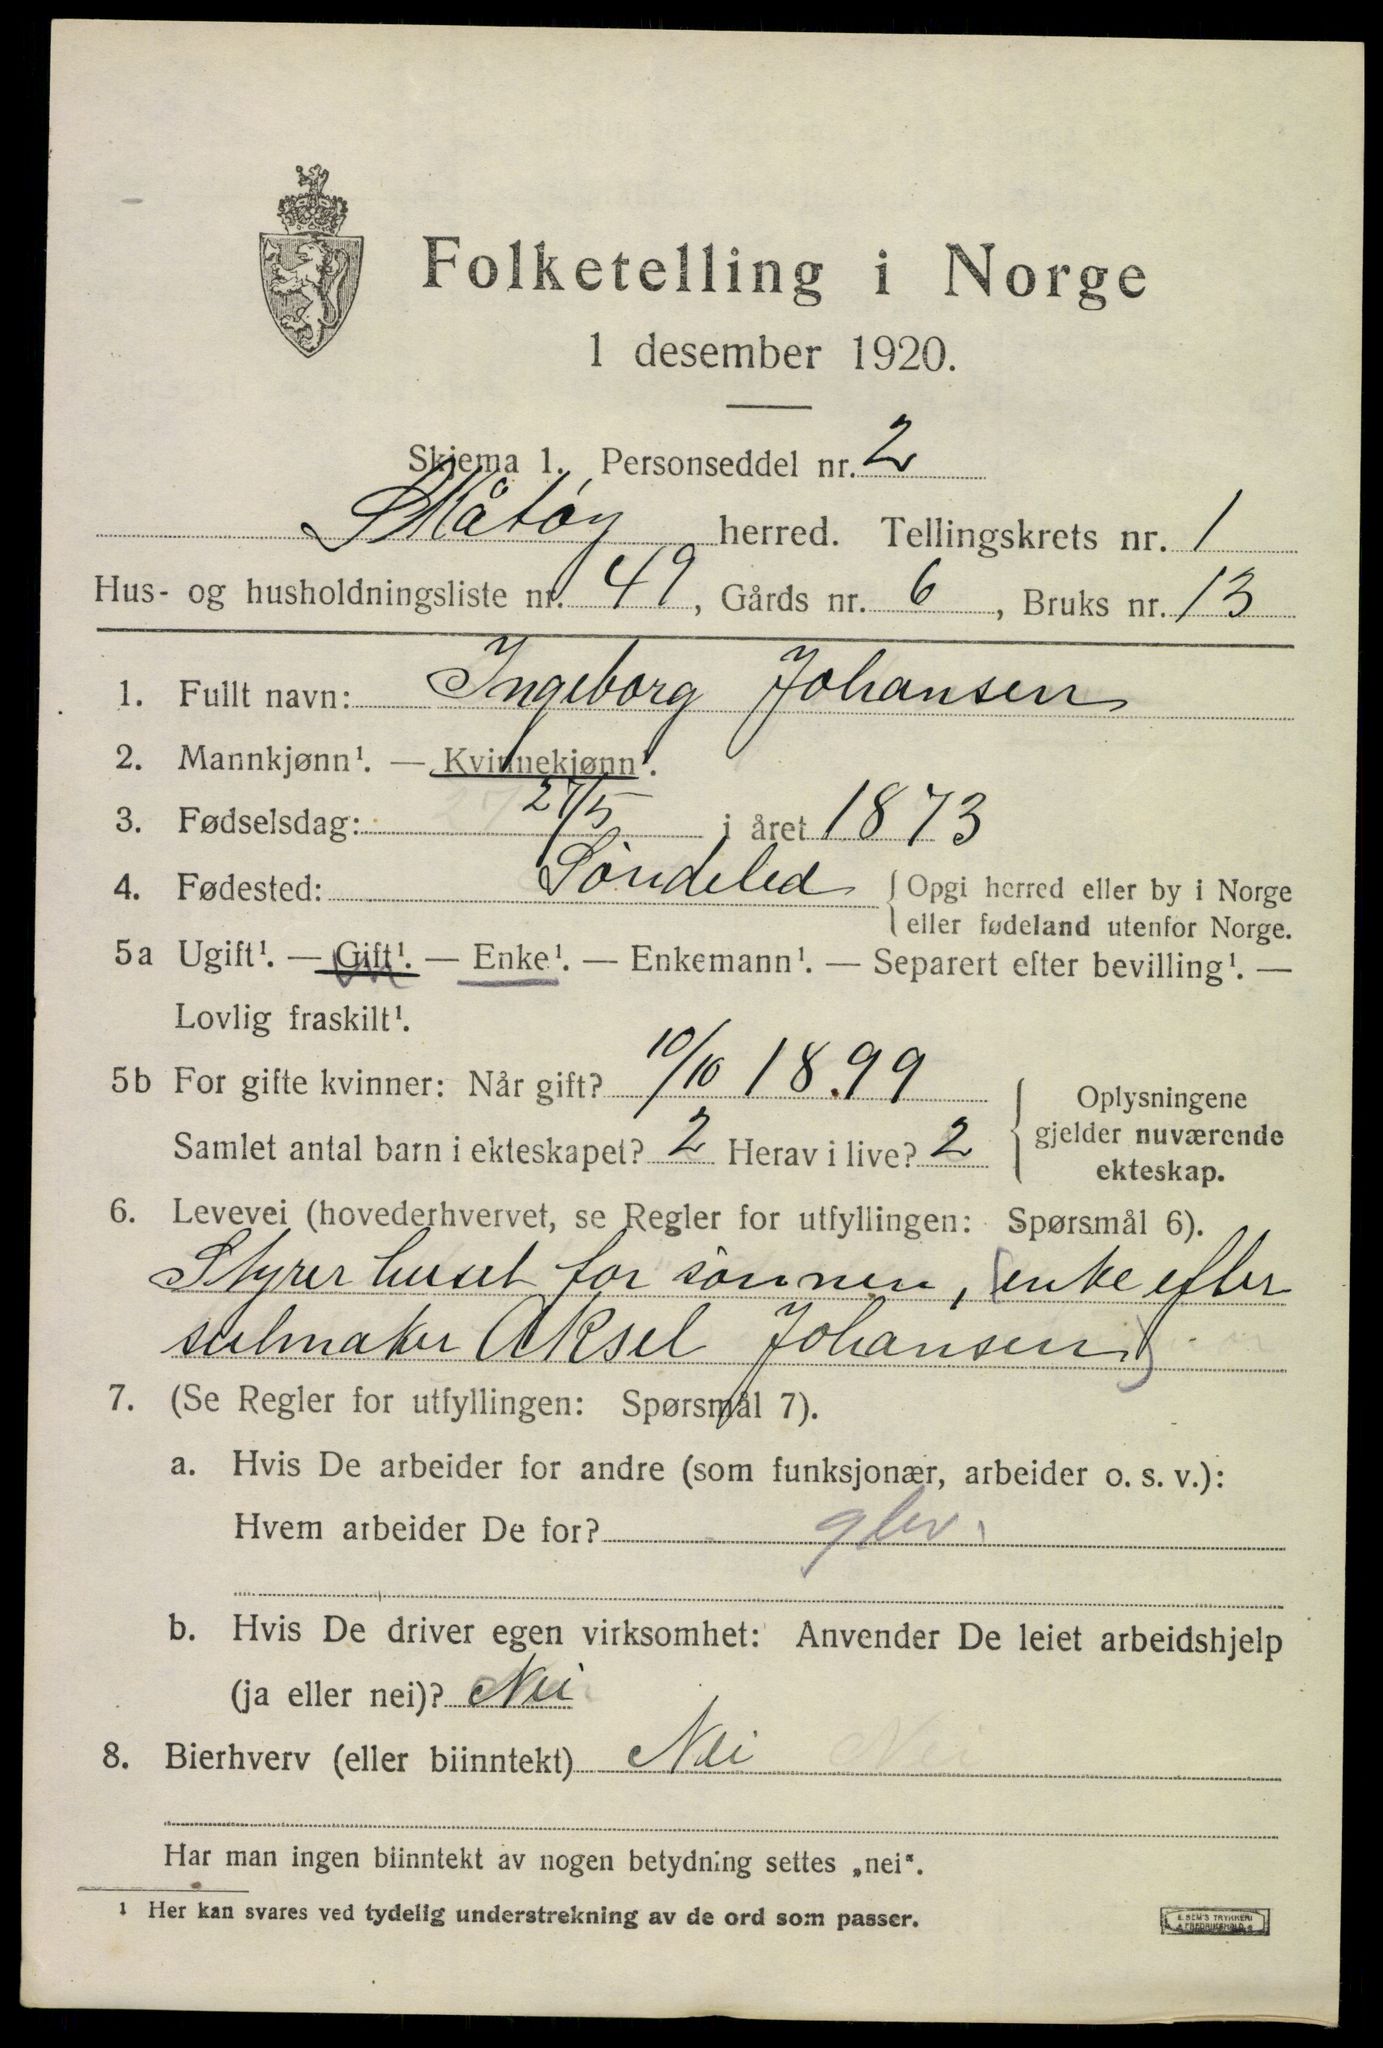 Folketelling i Norge
1 desember 1920.
Skjema 1. Personseddel nr. 2
Skåtøy herred. Tellingskrets nr. 1
Hus- og husholdningsliste nr. 49, Gårds nr. 6, Bruks nr. 13
1. Fullt navn: Ingeborg Johansen
2. Mannkjønn¹. — Kvinnekjønn¹.
3. Fødselsdag: 27/5 i året 1873
4. Fødested: Søndeled { Opgi herred eller by i Norge
eller fødeland utenfor Norge.
5a Ugift¹. — Gift¹. — Enke¹. — Enkemann¹. — Separert efter bevilling¹. —
Lovlig fraskilt¹.
5b For gifte kvinner: Når gift? 10/10 18.99
Samlet antal barn i ekteskapet? 2 Herav i live? 2
Oplysningene
gjelder nuværende
ekteskap.
6. Levevei (hovederhvervet, se Regler for utfyllingen: Spørsmål 6).
Styrer huset for sønnen, (enke efter
seilmaker Aksel Johansen)
7. (Se Regler for utfyllingen: Spørsmål 7).
a. Hvis De arbeider for andre (som funksjonær, arbeider o. s. v.):
Hvem arbeider De for?
b. Hvis De driver egen virksomhet: Anvender De leiet arbeidshjelp
(ja eller nei)? Nei
8. Bierhverv (eller biinntekt) Nei Nei
Har man ingen biinntekt av nogen betydning settes „nei“.
¹ Her kan svares ved tydelig understrekning av de ord som passer.
E. SEM'S TRYKKERI
FREDRIKSHALD